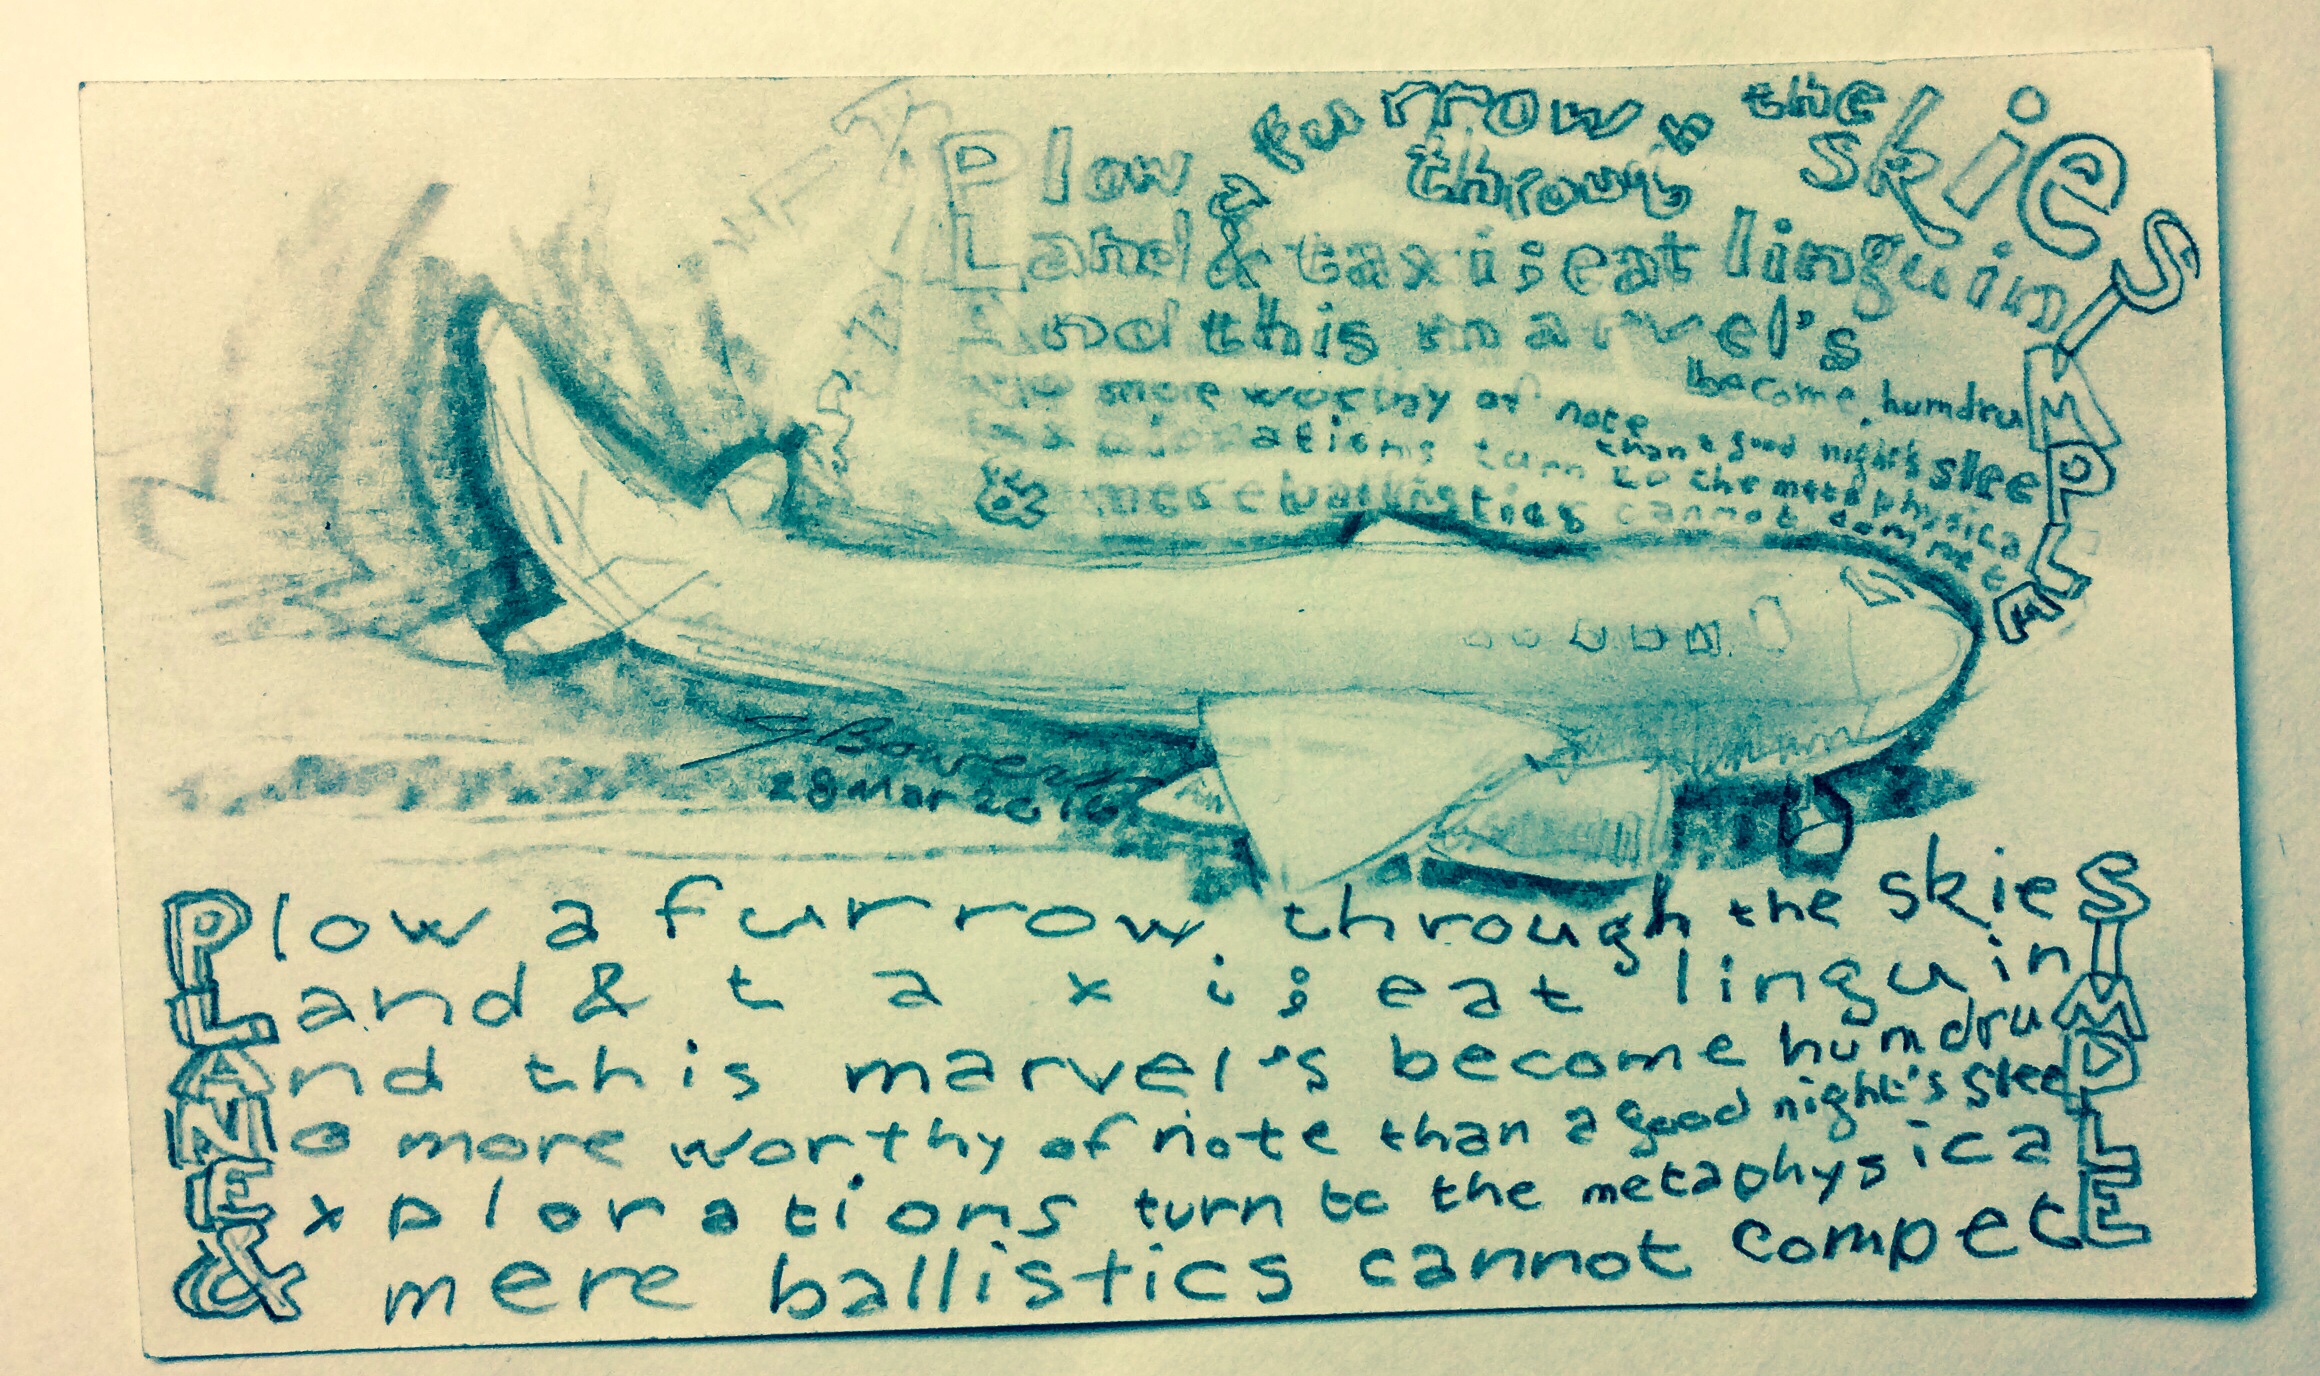 Plow a furrow through the skies
throug
Land & taxi; eat linguin I
And this marvel's become humdru M
No more worthy of note than a good night's slee P
explorations turn to the metaphysica L
& mere ballistics cannot commpet E
SBowers
28 Mar 2016
Plow a furrow through the skieS
Land & taxi; eat linguinI
And this marvel's become humdruM
No more worthy of note than a good night's sleeP
Explorations turn to the metaphysicaL
& mere ballistics cannot competE